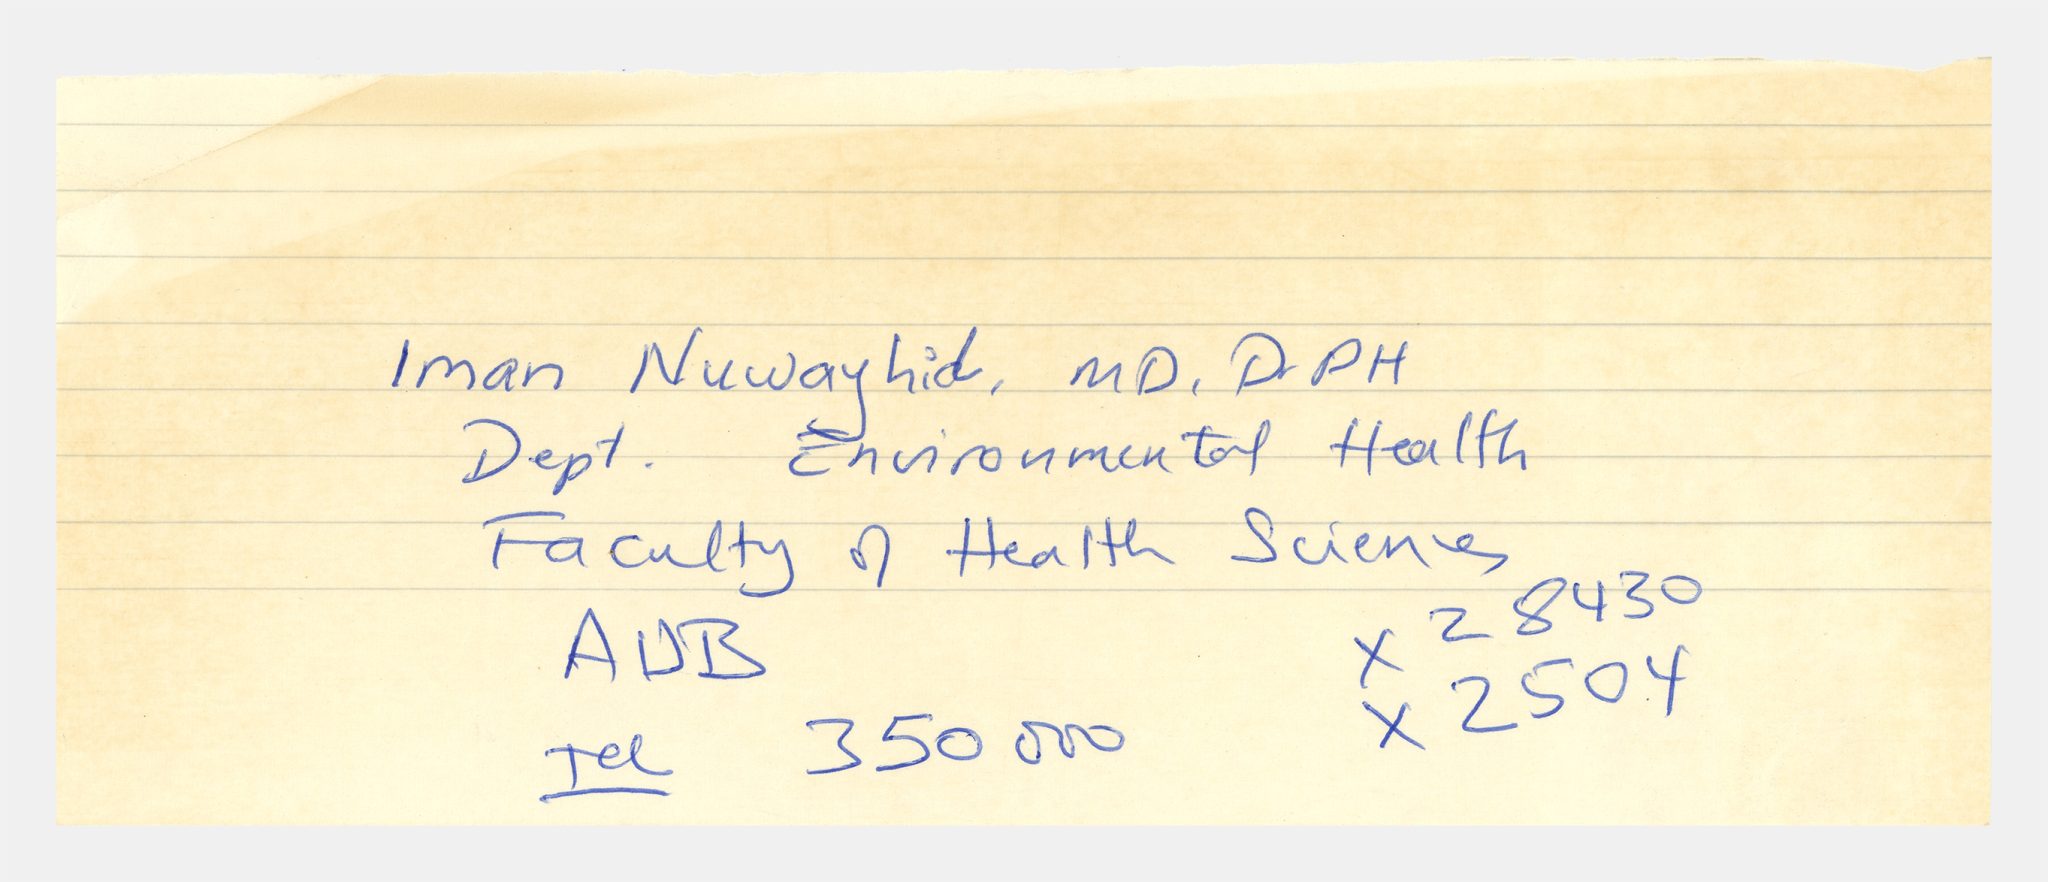 Iman Nuwayhid, MD, DrPH
Dept. Environmental Health
Faculty of Health Sciences
AUB x 28430
x 2504
Tel 350 000